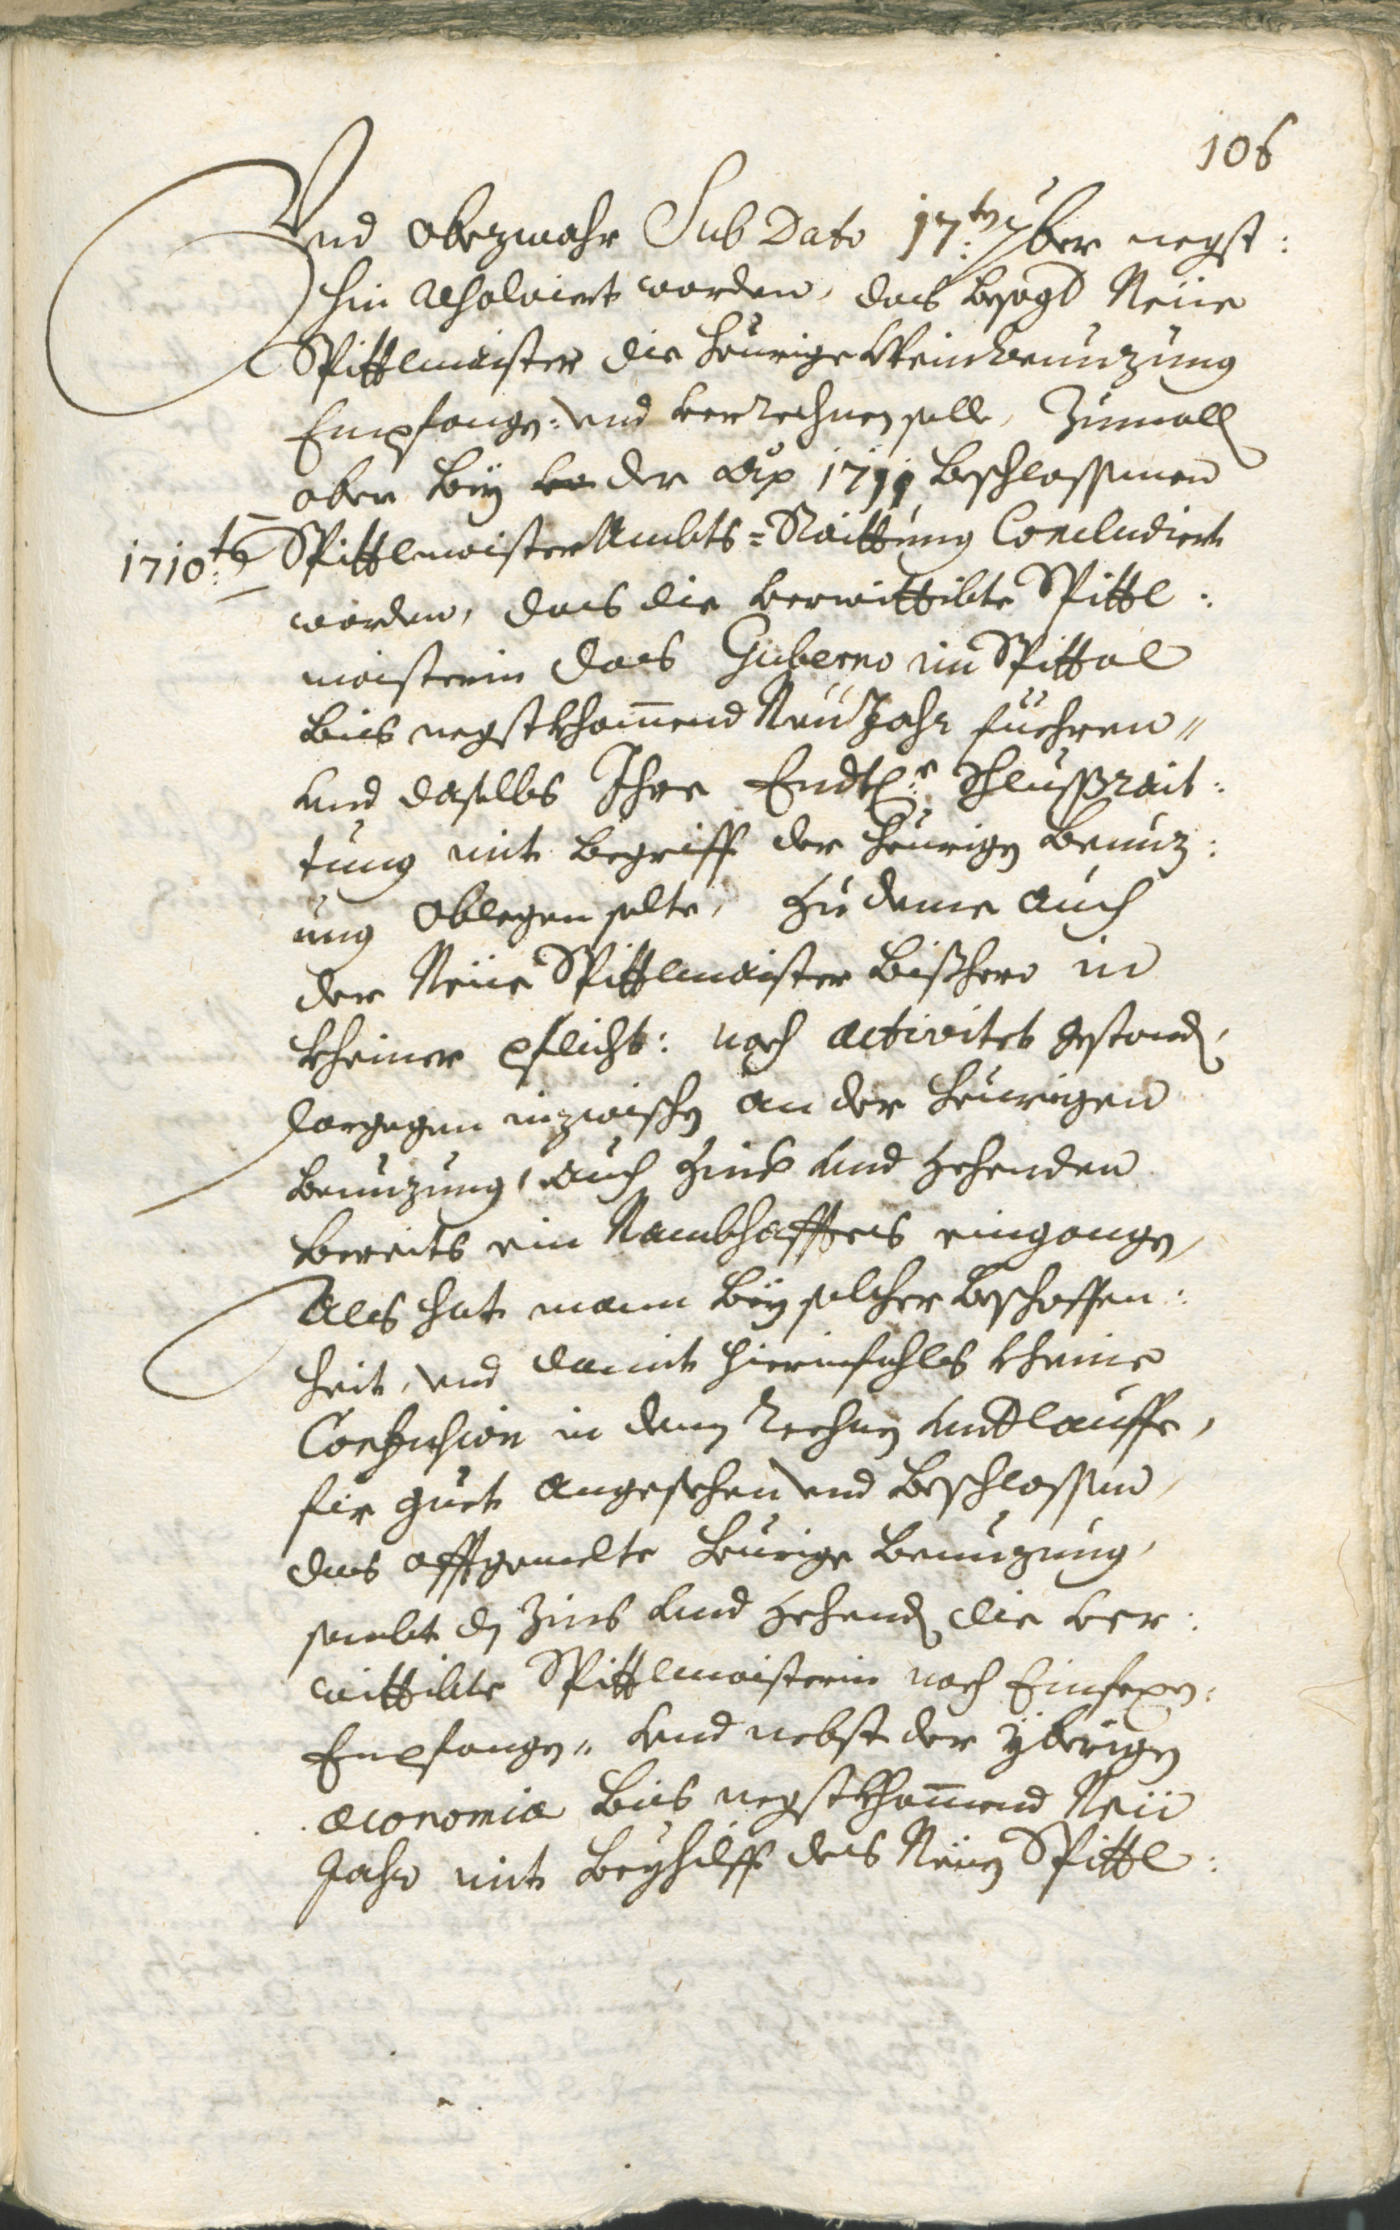 106
Und obezwahr Sub Dato 17.ten 7ber negst:
hin resolviert worden, das besagt Neüe
Spittlmaister die heurige Weinbenuzung
Empfangen: und verrechnen solle, Zumall
aber bey der 1711 beschlossenen
1710.te Spittlmaister Ambts=Raittung Concludiert
worden, das die verwittibte Spittl:
maisterin das Guberno im Spittal
bis negstkhommend Neu Jahr fuehren"
und daselbs Ihre Endtl: Schlußrait:
tung mit begriff der heurigen benuz:
ung ablegen solte, Zu deme auch
der Neüe Spittlmaister bishero in
kheiner pflicht: noch activitet gestanden,
dargegen inzwischen an der heurigen
benuzung, auch Zins und Zehenden
bereits ein Nambhafftes eingangen,
Als hat mann bey solcher beschaffen:
heit, und damit hierinfahls kheine
Confusion in dem rechnen undlauffe,
fir guet angesehen und beschlossen,
das offtgemelte heurige benuzung,
sambt den Zins und Zehend die ver:
wittibte Spittlmaisterin noch Einfexen:
Empfangen" und nebst der yberigen
œconomia bis negstkhommend Neü
Jahr mit beyhilff des Neuen Spittl: